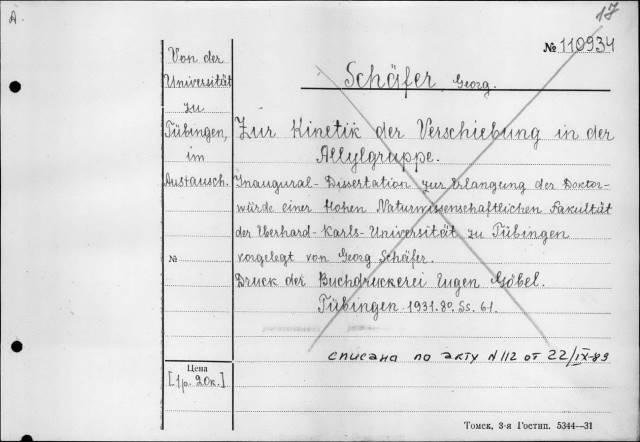 A.
17
№ 110934
Von der
Universität
zu
Tübingen,
im
Austausch.
Schäfer, Georg.
Zur Kinetik der Verschiebung in der
Allylgruppe.
Inaugural-Dissertation zur Erlangung der Doktor-
würde einer Hohen Naturwissenschaftlichen Fakultät
der Eberhard-Karls-Universität zu Tübingen
vorgelegt von Georg Schäfer.
Druck der Buchdruckerei Eugen Göbel.
Tübingen 1931. 8º. Ss. 61.
№
списана по акту N 112 от 22/IX-89
Цена
[1р. 20к.]
Томск, 3-я Гостип. 5344—31